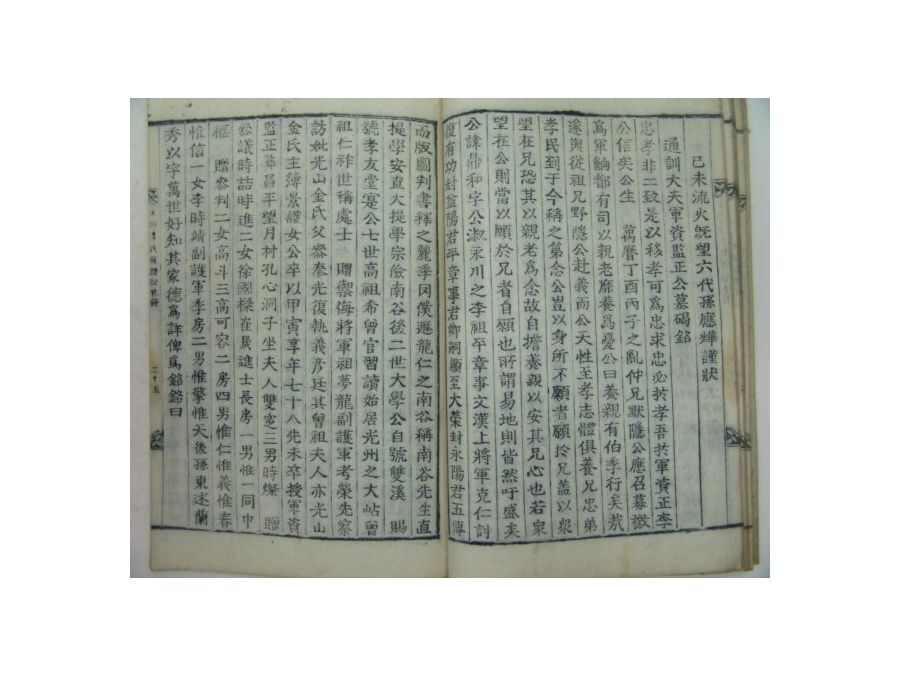 己未流火旣望六代孫應燁謹狀
通訓大夫軍資監正公墓碣銘
忠孝非二致是以移孝可爲忠求忠必於孝吾於軍資正李
公信矣公生　萬曆丁酉丙子之亂仲兄默隱公應召募檄
爲軍餉都有司以親老靡養爲憂公曰養親有伯季行矣哉
遂與從祖兄野隱公赴義而公天性至孝志體俱養兄忠弟
孝民到于今稱之第念公豈以身所不願者願於兄蓋以衆
望在兄恐其以親老爲念故自擔養親以安其兄心也若衆
望在公則當以願於兄者自願也所謂易地則皆然吁盛矣
公諱鼎和字公淑永川之李祖平章事文漢上將軍克仁討
復有功封益陽君平章事君卿嗣顯至大榮封永陽君五傳
而版圖判書釋之麗季罔僕遯龍仁之南谷稱南谷先生直
提學安直大提學宗儉南谷後二世大學公自號雙溪　賜
號孝友堂寔公七世高祖希曾官習讀始居光州之大岾曾
祖仁祚世稱處士　贈禦侮將軍祖夢龍副護軍考榮先察
訪妣光山金氏父參奉光復執義彥廷其曾祖夫人亦光山
金氏主簿景纘女公卒以甲寅享年七十八先未卒授軍資
監正葬昌平望月村孔心洞子坐夫人雙窆三男時燦　贈
參議時喆時進二女徐國樑崔晟進士長房一男惟一同中
樞　贈參判二女高斗三高可容二房四男惟仁惟義惟春
惟信一女李時靖副護軍季房二男惟擎惟天後孫東述蘭
秀以字萬世好知其家德爲詳俾爲銘銘曰
二十五